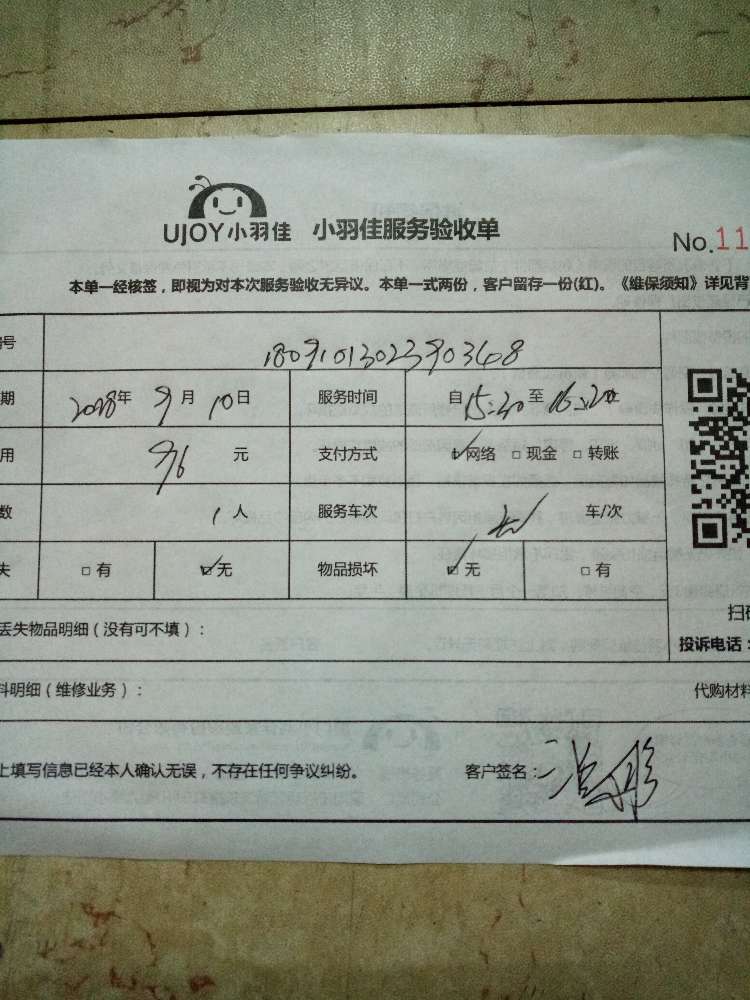 UJOY小羽佳 小羽佳服务验收单
No.11
本单一经核签，即视为对本次服务验收无异议。本单一式两份，客户留存一份(红)。《维保须知》详见背
号 18091013023903608
期 2018年 9月 10日 服务时间 自15:20至16:20止
用 96 元 支付方式 ☑网络 □现金 □转账
数 1 人 服务车次 车/次
失 □有 ☑无 物品损坏 ☑无 □有
扫
丢失物品明细（没有可不填）：
投诉电话：
料明细（维修业务）：
代购材料
上填写信息已经本人确认无误，不存在任何争议纠纷。 客户签名：